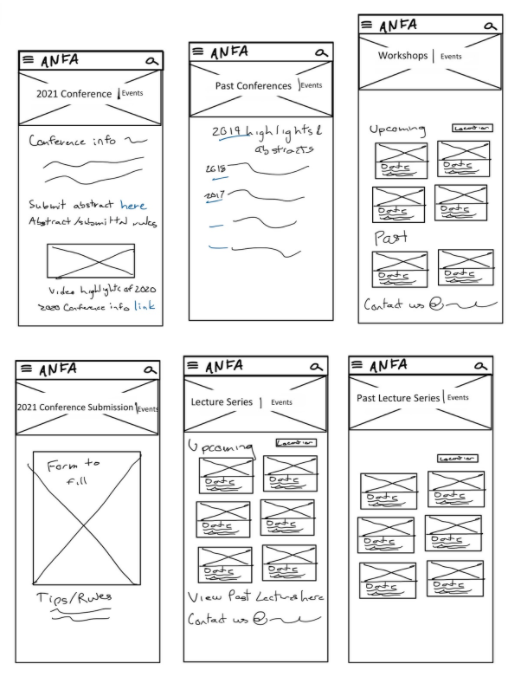 ANFA
2021 Conference | Events
Conference info
Submit abstract here
Abstract/submittal rules
Video highlights of 2020
2020 Conference info link
ANFA
Past Conferences | Events
2019 highlights &
abstracts
2018
2017
ANFA
Workshops | Events
Upcoming
Location
Date Date
Date Date
Past
Date Date
Contact us @
ANFA
2021 Conference Submission | Events
Form to
fill
Tips/Rules
ANFA
Lecture Series | Events
Upcoming
Location
Date Date
Date Date
Date Date
View Past Lectures here
Contact us @
ANFA
Past Lecture Series | Events
Location
Date Date
Date Date
Date Date